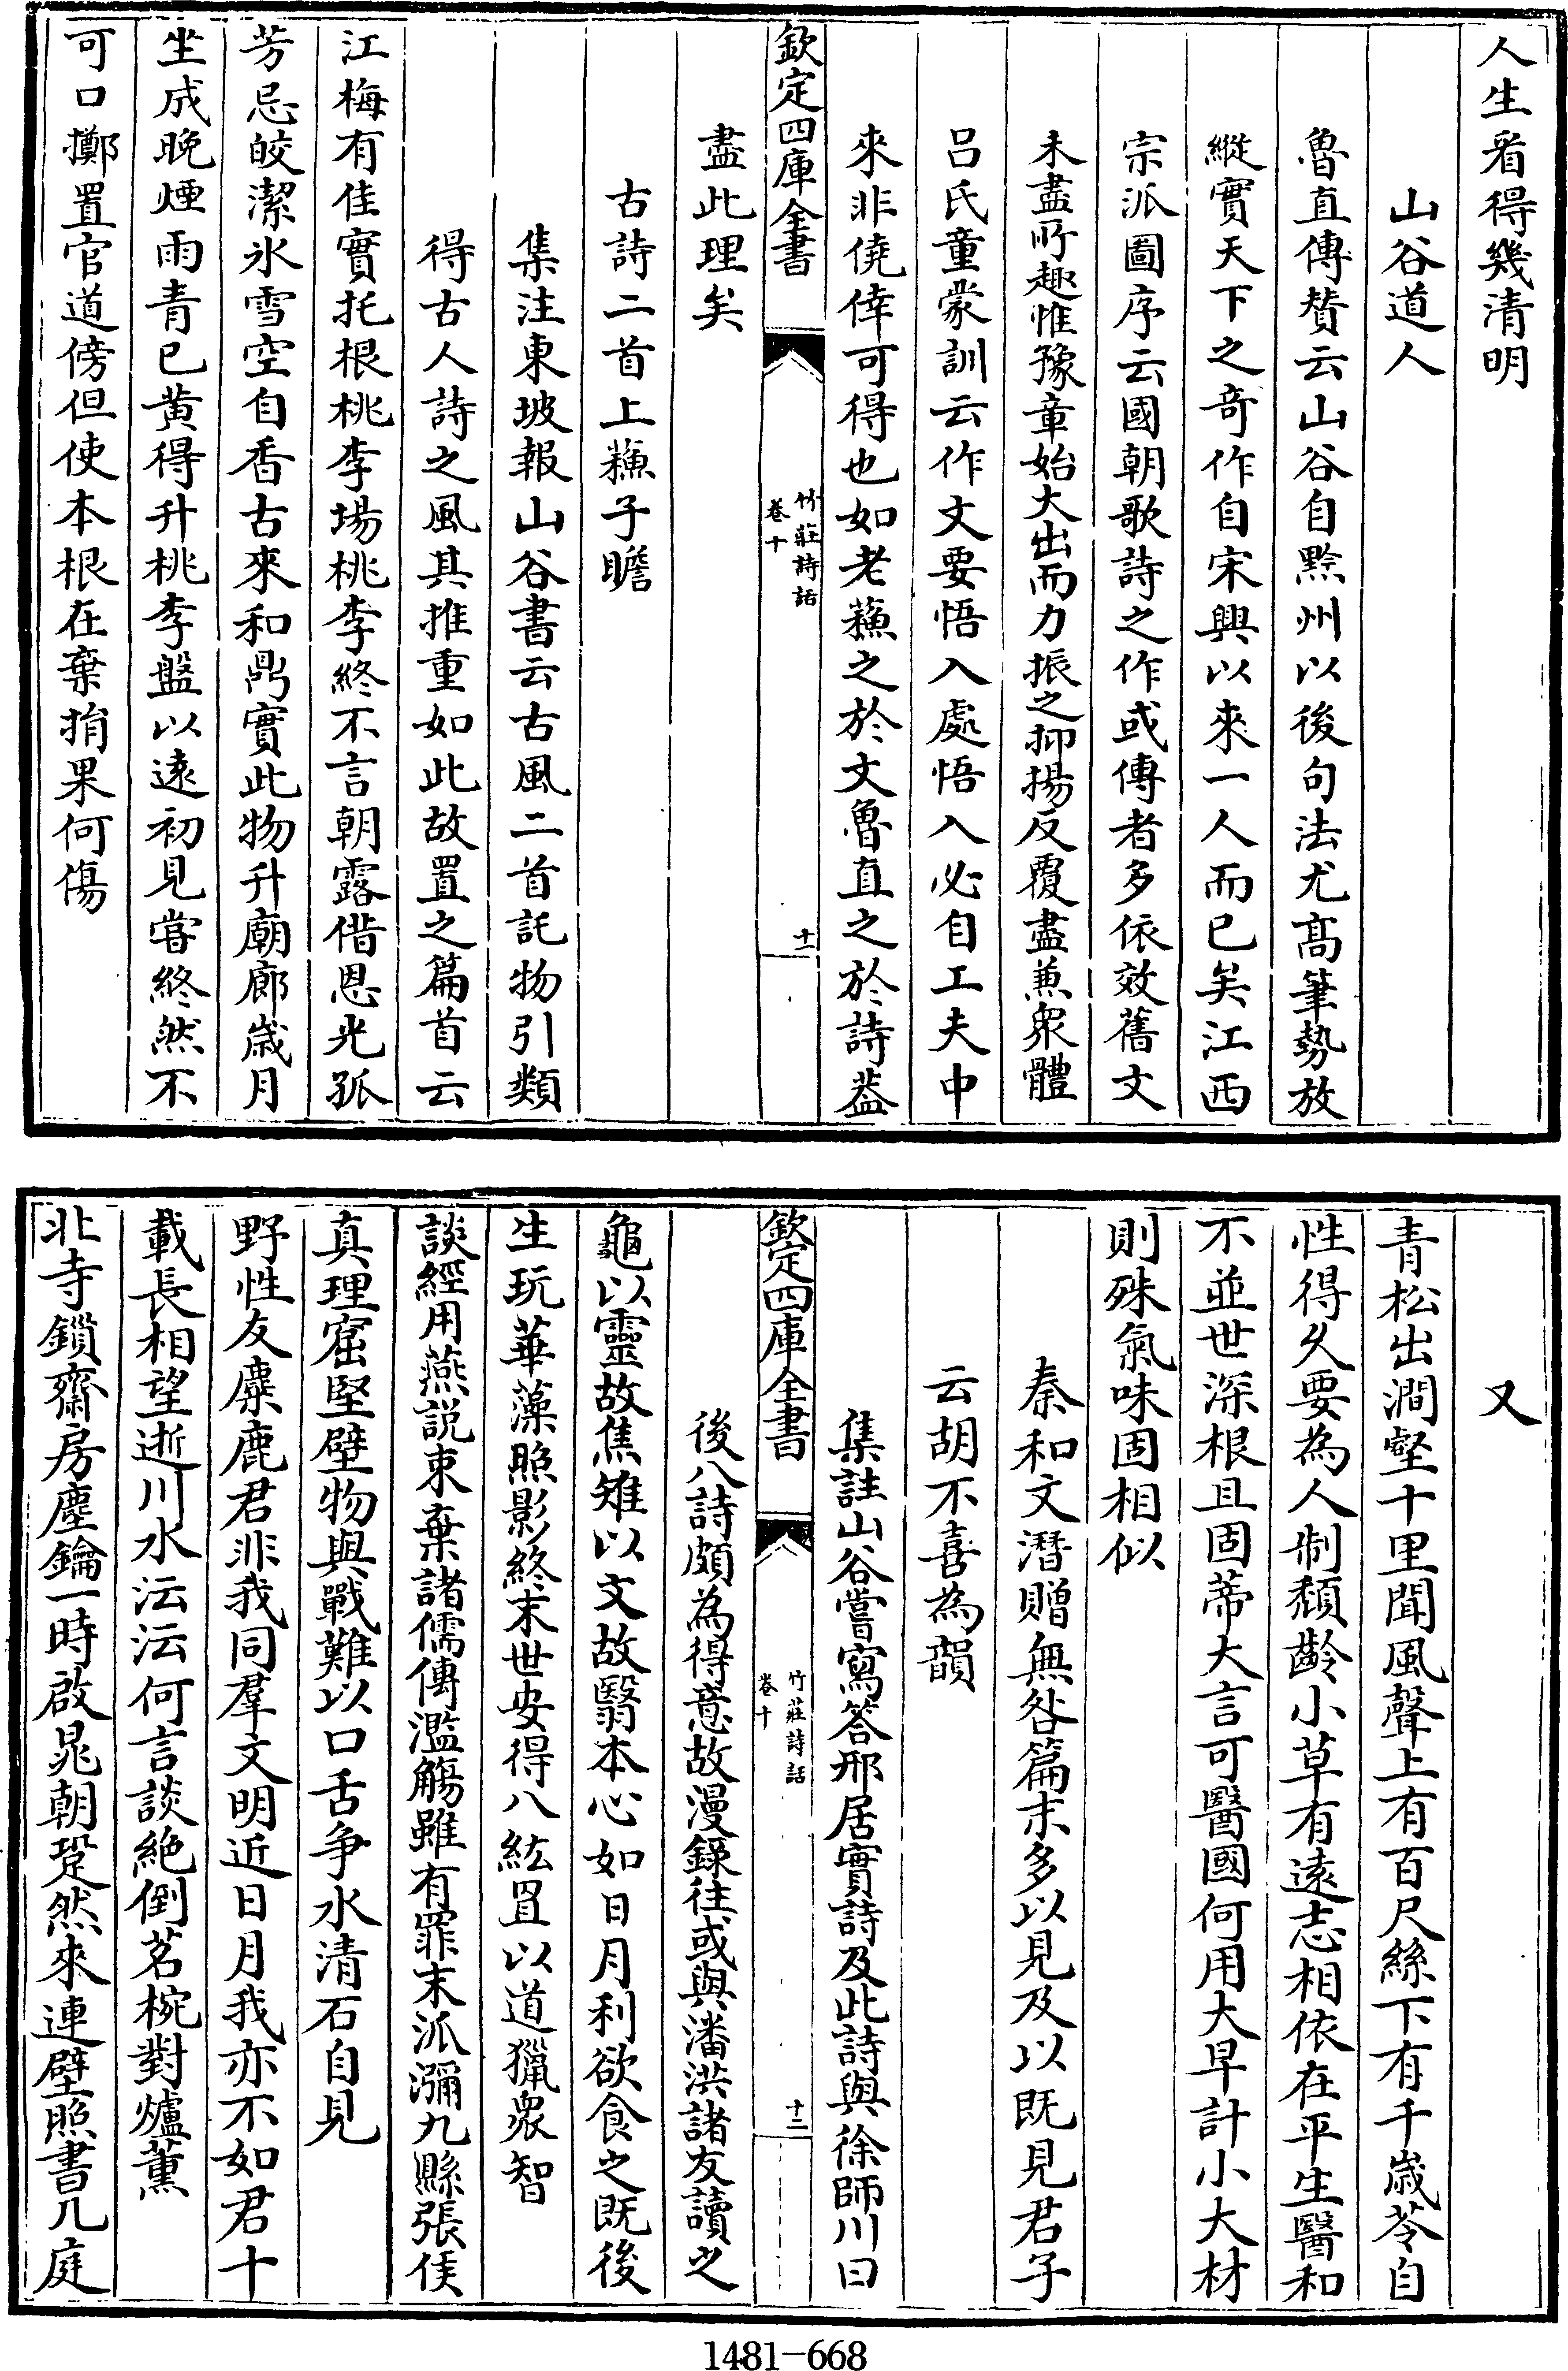 人生看得幾清明
山谷道人
魯直傳賛云山谷自黔州以後句法尤髙筆勢放
縱實天下之竒作自宋興以來一人而已矣江西
宗派圖序云國朝歌詩之作或傳者多依效舊文
未盡所趣惟豫章始大出而力振之抑揚反覆盡兼衆體
吕氏童蒙訓云作文要悟入處悟入必自工夫中
來非僥倖可得也如老蘓之於文魯直之於詩葢
欽定四庫全書
竹莊詩話
卷十
十一
盡此理矣
古詩二首上蘓子瞻
集注東坡報山谷書云古風二首託物引類
得古人詩之風其推重如此故置之篇首云
江梅有佳實托根桃李場桃李終不言朝露借恩光孤
芳忌皎潔氷雪空自香古來和鼎實此物升廟廊歲月
坐成晚煙雨青已黄得升桃李盤以逺初見嘗終然不
可口擲置官道傍但使本根在棄捐果何傷
又
青松出澗壑十里聞風聲上有百尺絲下有千歲苓自
性得久要為人制頽齡小草有逺志相依在平生醫和
不並世深根且固蒂大言可醫國何用大早計小大材
則殊氣味固相似
秦和文潛贈無咎篇末多以見及以既見君子
云胡不喜為韻
集註山谷嘗寫答邢居實詩及此詩與徐師川曰
欽定四庫全書
竹莊詩話
卷十
十二
後八詩頗為得意故漫録往或與潘洪諸友讀之
龜以靈故焦雉以文故翳本心如日月利欲食之既後
生玩華藻照影終末世安得八紘罝以道獵衆智
談經用燕説束棄諸儒傳濫觴雖有罪末派瀰九縣張侯
真理窟堅壁物與戰難以口舌争水清石自見
野性友麋鹿君非我同羣文明近日月我亦不如君十
載長相望逝川水沄沄何言談絶倒茗椀對爐薰
北寺鎖齋房塵鑰一時啟晁朝跫然來連壁照書几庭
1481-668